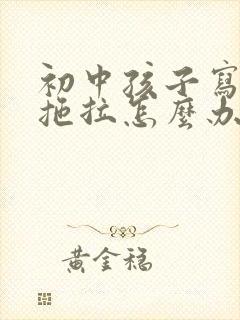 初中孩子寫
拖拉怎麼办
黃金稳